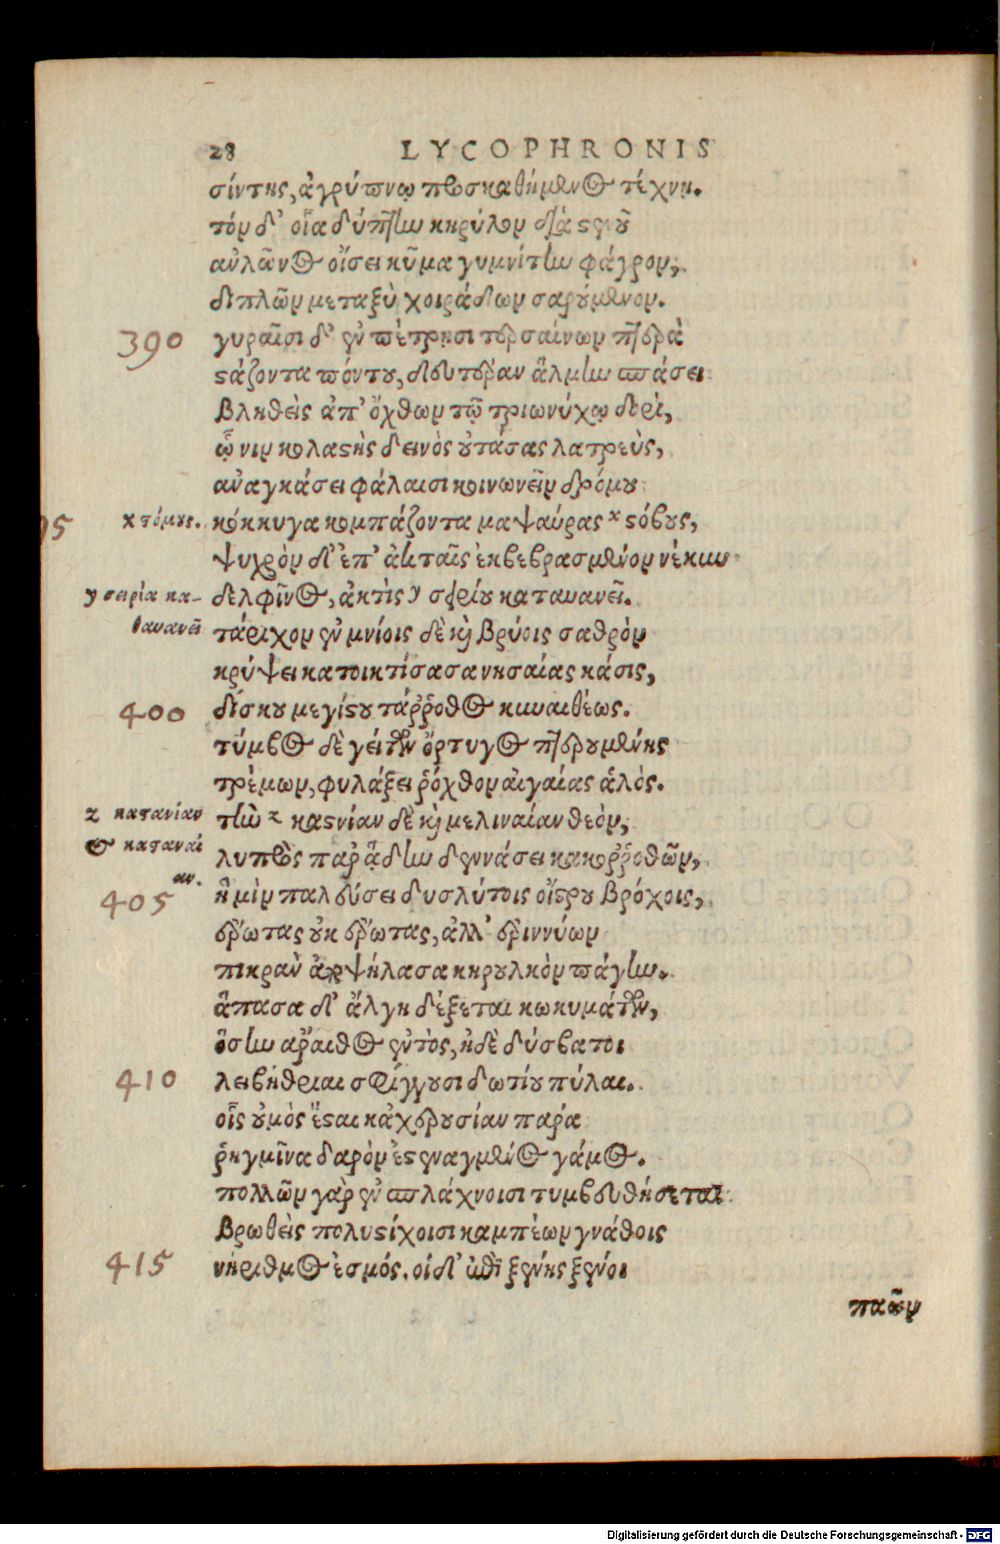 28 LYCOPHRONIS
σίντης, ἀγρύπνῳ προσκαθήμενος τέχνῃ.
τὸν δ' οἷα δύπτην κηρύλον διὰ στενοῦ
αὐλῶνος οἴσει κῦμα γυμνίτην φάγρον,
διπλῶν μεταξὺ χοιράδων σαρούμενον.
390 γυραῖσι δ' ἐν πέτρῃσι τερσαίνων πτερὰ
στάζοντα πόντου, δευτέραν ἅλμην σπάσει
βληθεὶς ἀπ' ὄχθων τῷ τριωνύχῳ δορὶ,
ᾧ νιν κολαστὴς δεινὸς οὐτάσας λατρεὺς,
ἀναγκάσει φάλαισι κοινωνεῖν δρόμου
95 x τόμους. κόκκυγα κομπάζοντα μαψαύρας x στόβους,
ψυχρὸν δ' ἐπ' ἀκταῖς ἐκβεβρασμένον νέκυν
y σειρία κα- δελφῖνος, ἀκτὶς y σειρίου καταυανεῖ.
θαυανεῖ τάριχον ἐν μνίοις δὲ καὶ βρύοις σαθρὸν
κρύψει κατοικτίσασα νησαίας κάσις,
400 δίσκου μεγίστου τάρροθος κυναιθέως.
τύμβος δὲ γείτων ὄρτυγος πετρουμένης
τρέμων, φυλάξει ῥόχθον αἰγαίας ἁλός.
z κατανίαν τὴν z καστνίαν δὲ καὶ μελιναίαν θεὸν,
& καταναί λυπρὸς παρ' ᾅδην δεννάσει κακορροθῶν,
αν.
405 ἥ μιν παλεύσει δυσλύτοις οἴστρου βρόχοις,
ἔρωτας οὐκ ἔρωτας, ἀλλ' ἐριννύων
πικρὰν ἀποψήλασα κηρουλκὸν πάγην.
ἅπασα δ' ἄλγη δέξεται κωκυμάτων,
ὅσην ἄραιθος ἐντὸς, ἠδὲ δύσβατοι
410 λειβήθριαι σφίγγουσι δωτίου πύλαι.
οἷς οὑμὸς ἔσται κἀχερουσίαν παρὰ
ῥηγμῖνα δαρὸν ἐστεναγμένος γάμος.
πολλῶν γὰρ ἐν σπλάχνοισι τυμβευθήσεται
βρωθεὶς πολυστίχοισι καμπέων γνάθοις
415 νήριθμος ἑσμός. οἱ δ' ἐπὶ ξένης ξένοι
παῶν
Digitalisierung gefördert durch die Deutsche Forschungsgemeinschaft - DFG